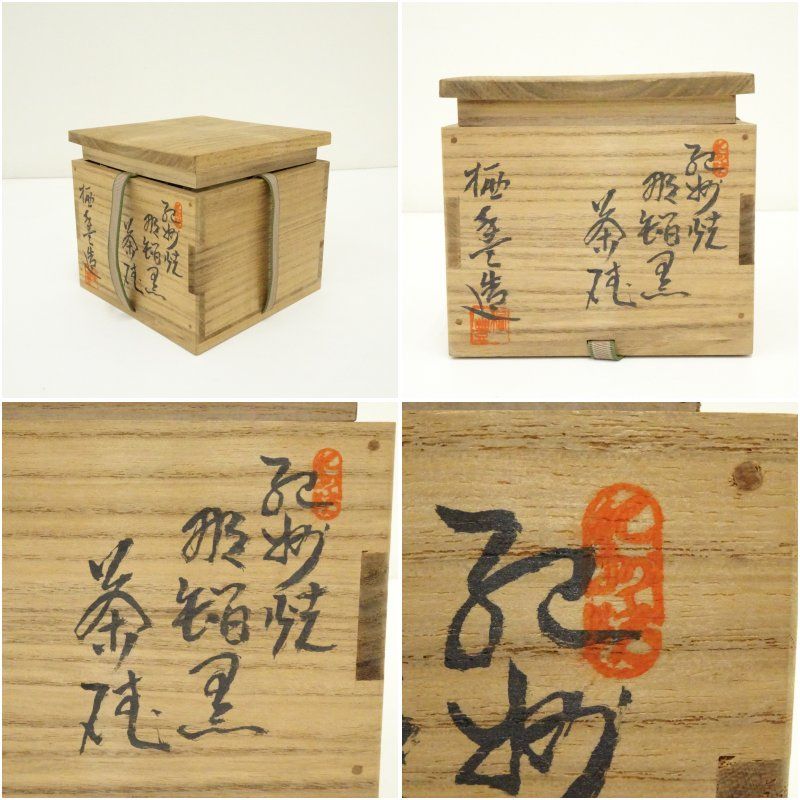 紀州焼
那智黒
茶碗
栖豊造
紀州焼
那智黒
茶碗
栖豊造
紀州焼
那智黒
茶碗
紀州